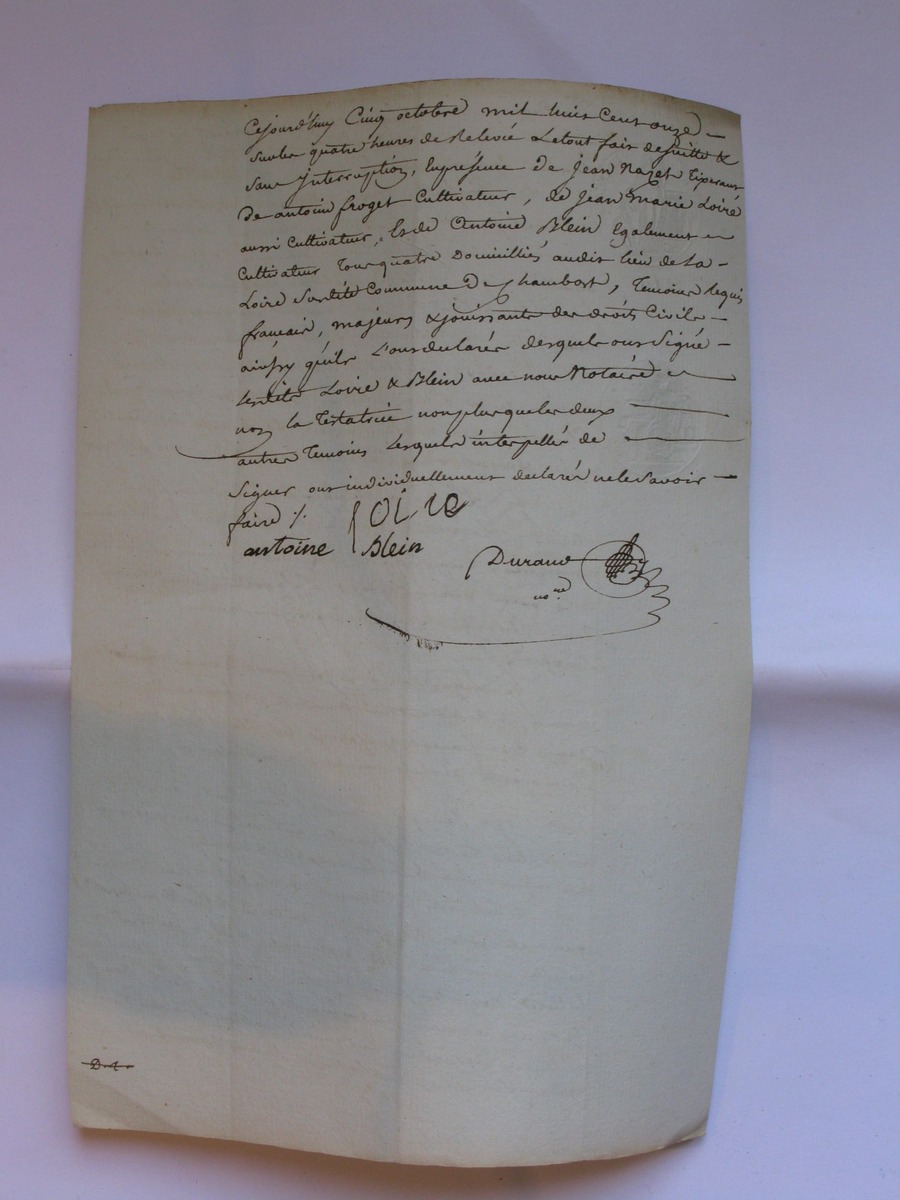 Cejourd'huy Cinq octobre mil huit cent onze
sur les quatre heures de Relevée Le tout fait de suitte &
sans Interruption, En présence de Jean Nazet Tixerant
de antoine froget Cultivateur, de Jean Marie Loire
aussi Cultivateur, & de Antoine Blein Egalement
Cultivateur Tous quatre Domiciliés audit lieu de La
Loire Susdite Commune De Chambost, Temoins Requis
français, majeurs & jouissants des droits Civils
ainsy qu'ils L'ont declarés desquels ont Signé
Lesdits Loire & Blein avec nous Notaire
non la Testatrice non plus que les deux
autres Temoins Lesquels interpellés de
Signer ont individuellement declaré ne le Savoir
faire ./.
loire
antoine Blein
Durand
nore